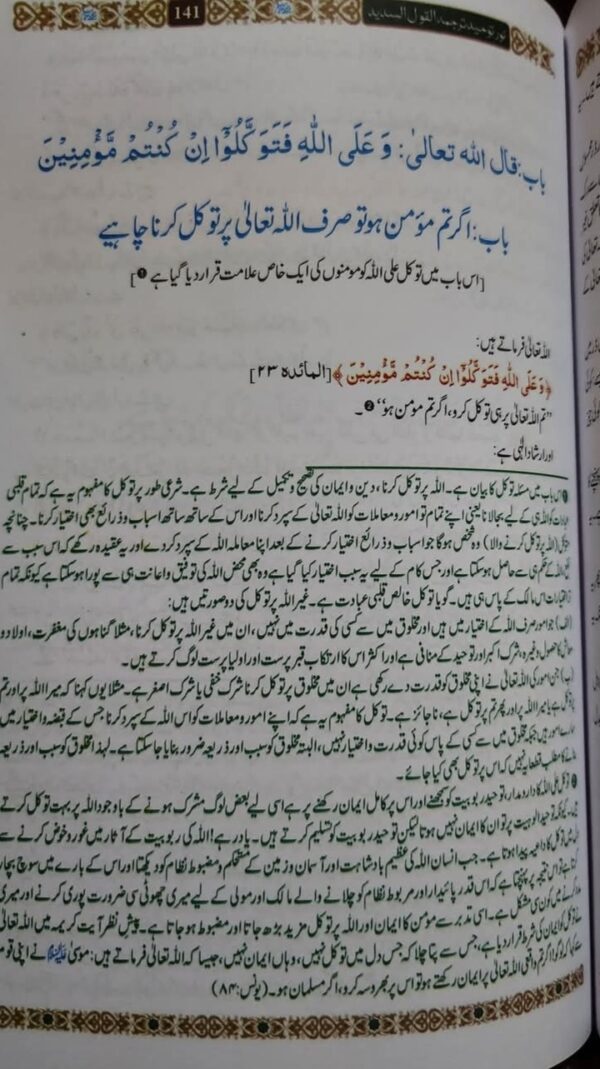 141
نور توحید ترجمہ القول السدید
باب: قال الله تعالیٰ: وَ عَلَى اللّٰهِ فَتَوَكَّلُوْٓا اِنْ كُنْتُمْ مُّؤْمِنِيْنَ
باب: اگر تم مؤمن ہو تو صرف اللہ تعالیٰ پر توکل کرنا چاہیے
[اس باب میں توکل علی اللہ کو مومنوں کی ایک خاص علامت قرار دیا گیا ہے ❶]
اللہ تعالیٰ فرماتے ہیں:
﴿وَ عَلَى اللّٰهِ فَتَوَكَّلُوْٓا اِنْ كُنْتُمْ مُّؤْمِنِيْنَ﴾ [المائدہ ۲۳]
”تم اللہ تعالیٰ پر ہی توکل کرو، اگر تم مومن ہو“ ❷۔
اور ارشاد الٰہی ہے:
❶ اس باب میں مسئلہ توکل کا بیان ہے۔ اللہ پر توکل کرنا، دین و ایمان کی تصحیح و تکمیل کے لیے شرط ہے۔ شرعی طور پر توکل کا مفہوم یہ ہے کہ تمام قلبی
عبادات کو اللہ ہی کے لیے بجا لانا یعنی اپنے تمام تو امور و معاملات کو اللہ تعالیٰ کے سپرد کرنا اور اس کے ساتھ ساتھ اسباب و ذرائع بھی اختیار کرنا۔ چنانچہ
متوکل (اللہ پر توکل کرنے والا) وہ شخص ہوگا جو اسباب و ذرائع اختیار کرنے کے بعد اپنا معاملہ اللہ کے سپرد کر دے اور یہ عقیدہ رکھے کہ اس سبب سے
نفع اللہ کے حکم ہی سے حاصل ہو سکتا ہے اور جس کام کے لیے یہ سبب اختیار کیا گیا ہے وہ بھی محض اللہ کی توفیق و اعانت ہی سے پورا ہو سکتا ہے کیونکہ تمام
تر اختیارات اس مالک کے پاس ہی ہیں۔ گویا توکل خالص قلبی عبادت ہے۔ غیر اللہ پر توکل کی دو صورتیں ہیں:
(الف) جو امور صرف اللہ کے اختیار میں ہیں اور مخلوق میں سے کسی کی قدرت میں نہیں، ان میں غیر اللہ پر توکل کرنا، مثلا گناہوں کی مغفرت، اولاد و
معاش کا حصول وغیرہ، شرک اکبر اور توحید کے منافی ہے اور اکثر اس کا ارتکاب قبر پرست اور اولیا پرست لوگ کرتے ہیں۔
(ب) جن امور کی اللہ تعالیٰ نے اپنی مخلوق کو قدرت دے رکھی ہے ان میں مخلوق پر توکل کرنا شرک خفی یا شرک اصغر ہے۔ مثلا یوں کہنا کہ میرا اللہ پر اور تم
پر توکل ہے یا میرا اللہ پر اور پھر تم پر توکل ہے، نا جائز ہے۔ توکل کا مفہوم یہ ہے کہ اپنے امور و معاملات کو اس اللہ کے سپرد کرنا جس کے قبضہ و اختیار میں
سارے امور ہیں جبکہ مخلوق میں سے کسی کے پاس کوئی قدرت و اختیار نہیں، البتہ مخلوق کو سبب اور ذریعہ ضرور بنایا جا سکتا ہے۔ لہذا مخلوق کو سبب اور ذریعہ
بنانے کا مطلب قطعا یہ نہیں کہ اس پر توکل بھی کیا جائے۔
❷ توکل علی اللہ کا دارومدار، توحید ربوبیت کو سمجھنے اور اس پر کامل ایمان رکھنے پر ہے اسی لیے بعض لوگ مشرک ہونے کے باوجود اللہ پر بہت توکل کرتے
ہیں۔ کیونکہ توحید الوہیت پر تو ان کا ایمان نہیں ہوتا لیکن توحید ربوبیت کو تسلیم کرتے ہیں۔ یاد رہے! اللہ کی ربوبیت کے آثار میں غور و خوض کرنے سے
دل میں توکل کا داعیہ پیدا ہوتا ہے۔ جب انسان اللہ کی عظیم بادشاہت اور آسمان و زمین کے مستحکم و مضبوط نظام کو دیکھتا اور اس کے بارے میں سوچ بچار
کرتا ہے تو اس نتیجہ پر پہنچتا ہے کہ اس قدر پائیدار اور مربوط نظام کو چلانے والے مالک اور مولیٰ کے لیے میری چھوٹی سی ضرورت پوری کرنے اور میری
مدد کرنے میں کون سی مشکل ہے۔ اسی تدبر سے مومن کا ایمان اور اللہ پر توکل مزید بڑھ جاتا اور مضبوط ہو جاتا ہے۔ پیش نظر آیت کریمہ میں اللہ تعالیٰ
نے توکل کو ایمان کی شرط قرار دیا ہے، جس سے پتا چلا کہ جس دل میں توکل نہیں، وہاں ایمان نہیں، جیسا کہ اللہ تعالیٰ فرماتے ہیں: موسیٰ علیہ السلام نے اپنی قوم
سے کہا کہ تو کو اگر تم واقعی اللہ تعالیٰ پر ایمان رکھتے ہو تو اس پر بھروسہ کرو، اگر مسلمان ہو۔ (یونس: ۸۴)